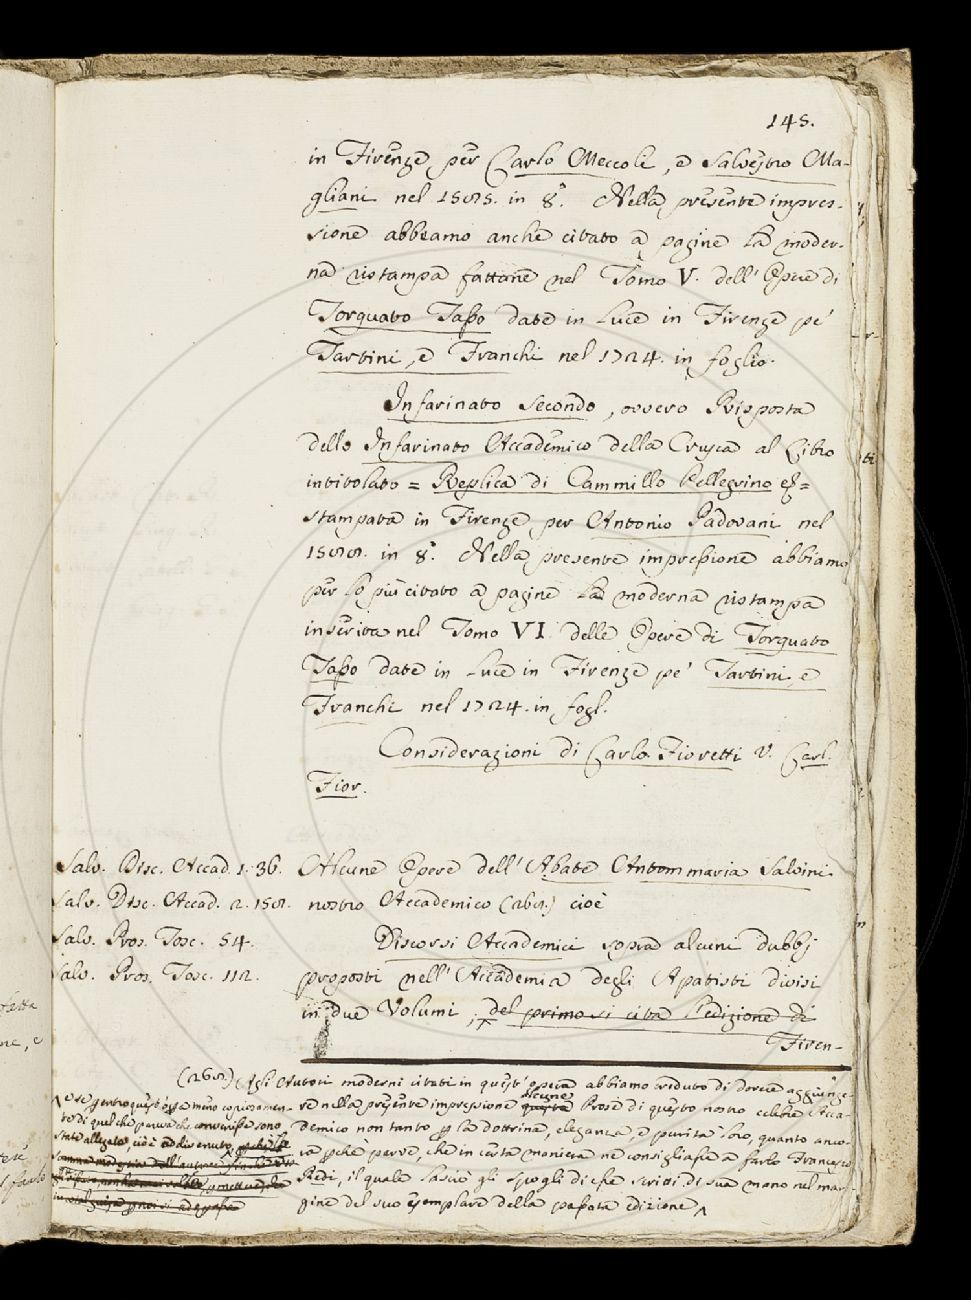 145.
in Firenze per Carlo Meccoli, e Salvestro Ma-
gliani nel 1585. in 8.° Nella presente impres-
sione abbiamo anche citato a pagine la moder-
na ristampa fattane nel Tomo V. dell' Opere di
Torquato Tasso date in luce in Firenze pe'
Tartini, e Franchi nel 1724. in foglio.
Infarinato Secondo, ovvero Risposta
dello Infarinato Accademico della Crusca al Libro
intitolato = Replica di Cammillo Pellegrino =
stampata in Firenze per Antonio Padovani nel
1588. in 8.° Nella presente impressione abbiamo
per lo più citato a pagine la moderna ristampa
inserita nel Tomo VI. delle Opere di Torquato
Tasso date in luce in Firenze pe' Tartini, e
Franchi nel 1724. in fogl.
Considerazioni di Carlo Fioretti V. Carl.
Fior.
Salv. Disc. Accad. 1. 36.
Salv. Disc. Accad. 2. 158.
Salv. Pros. Tosc. 54.
Salv. Pros. Tosc. 112.
Alcune Opere dell' Abate Antommaria Salvini
nostro Accademico (268.) cioè
Discorsi Accademici sopra alcuni dubbj
proposti nell' Accademia degli Apatisti divisi
in due Volumi, del primo si cita l'edizione di
Firen-
(268.) Agli Autori moderni citati in quest' opera abbiamo creduto di dovere aggiunge-
re nella presente impressione alcune queste Prose di questo nostro celebre Acca-
demico non tanto per la dottrina, eleganza, e purità loro, quanto anco-
ra perchè parve, che in certa maniera ne consigliasse a farlo Francesco
Redi, il quale lasciò gli spogli di esse scritti di sua mano nel mar-
gine del suo esemplare della passata edizione
state allegate, cioè